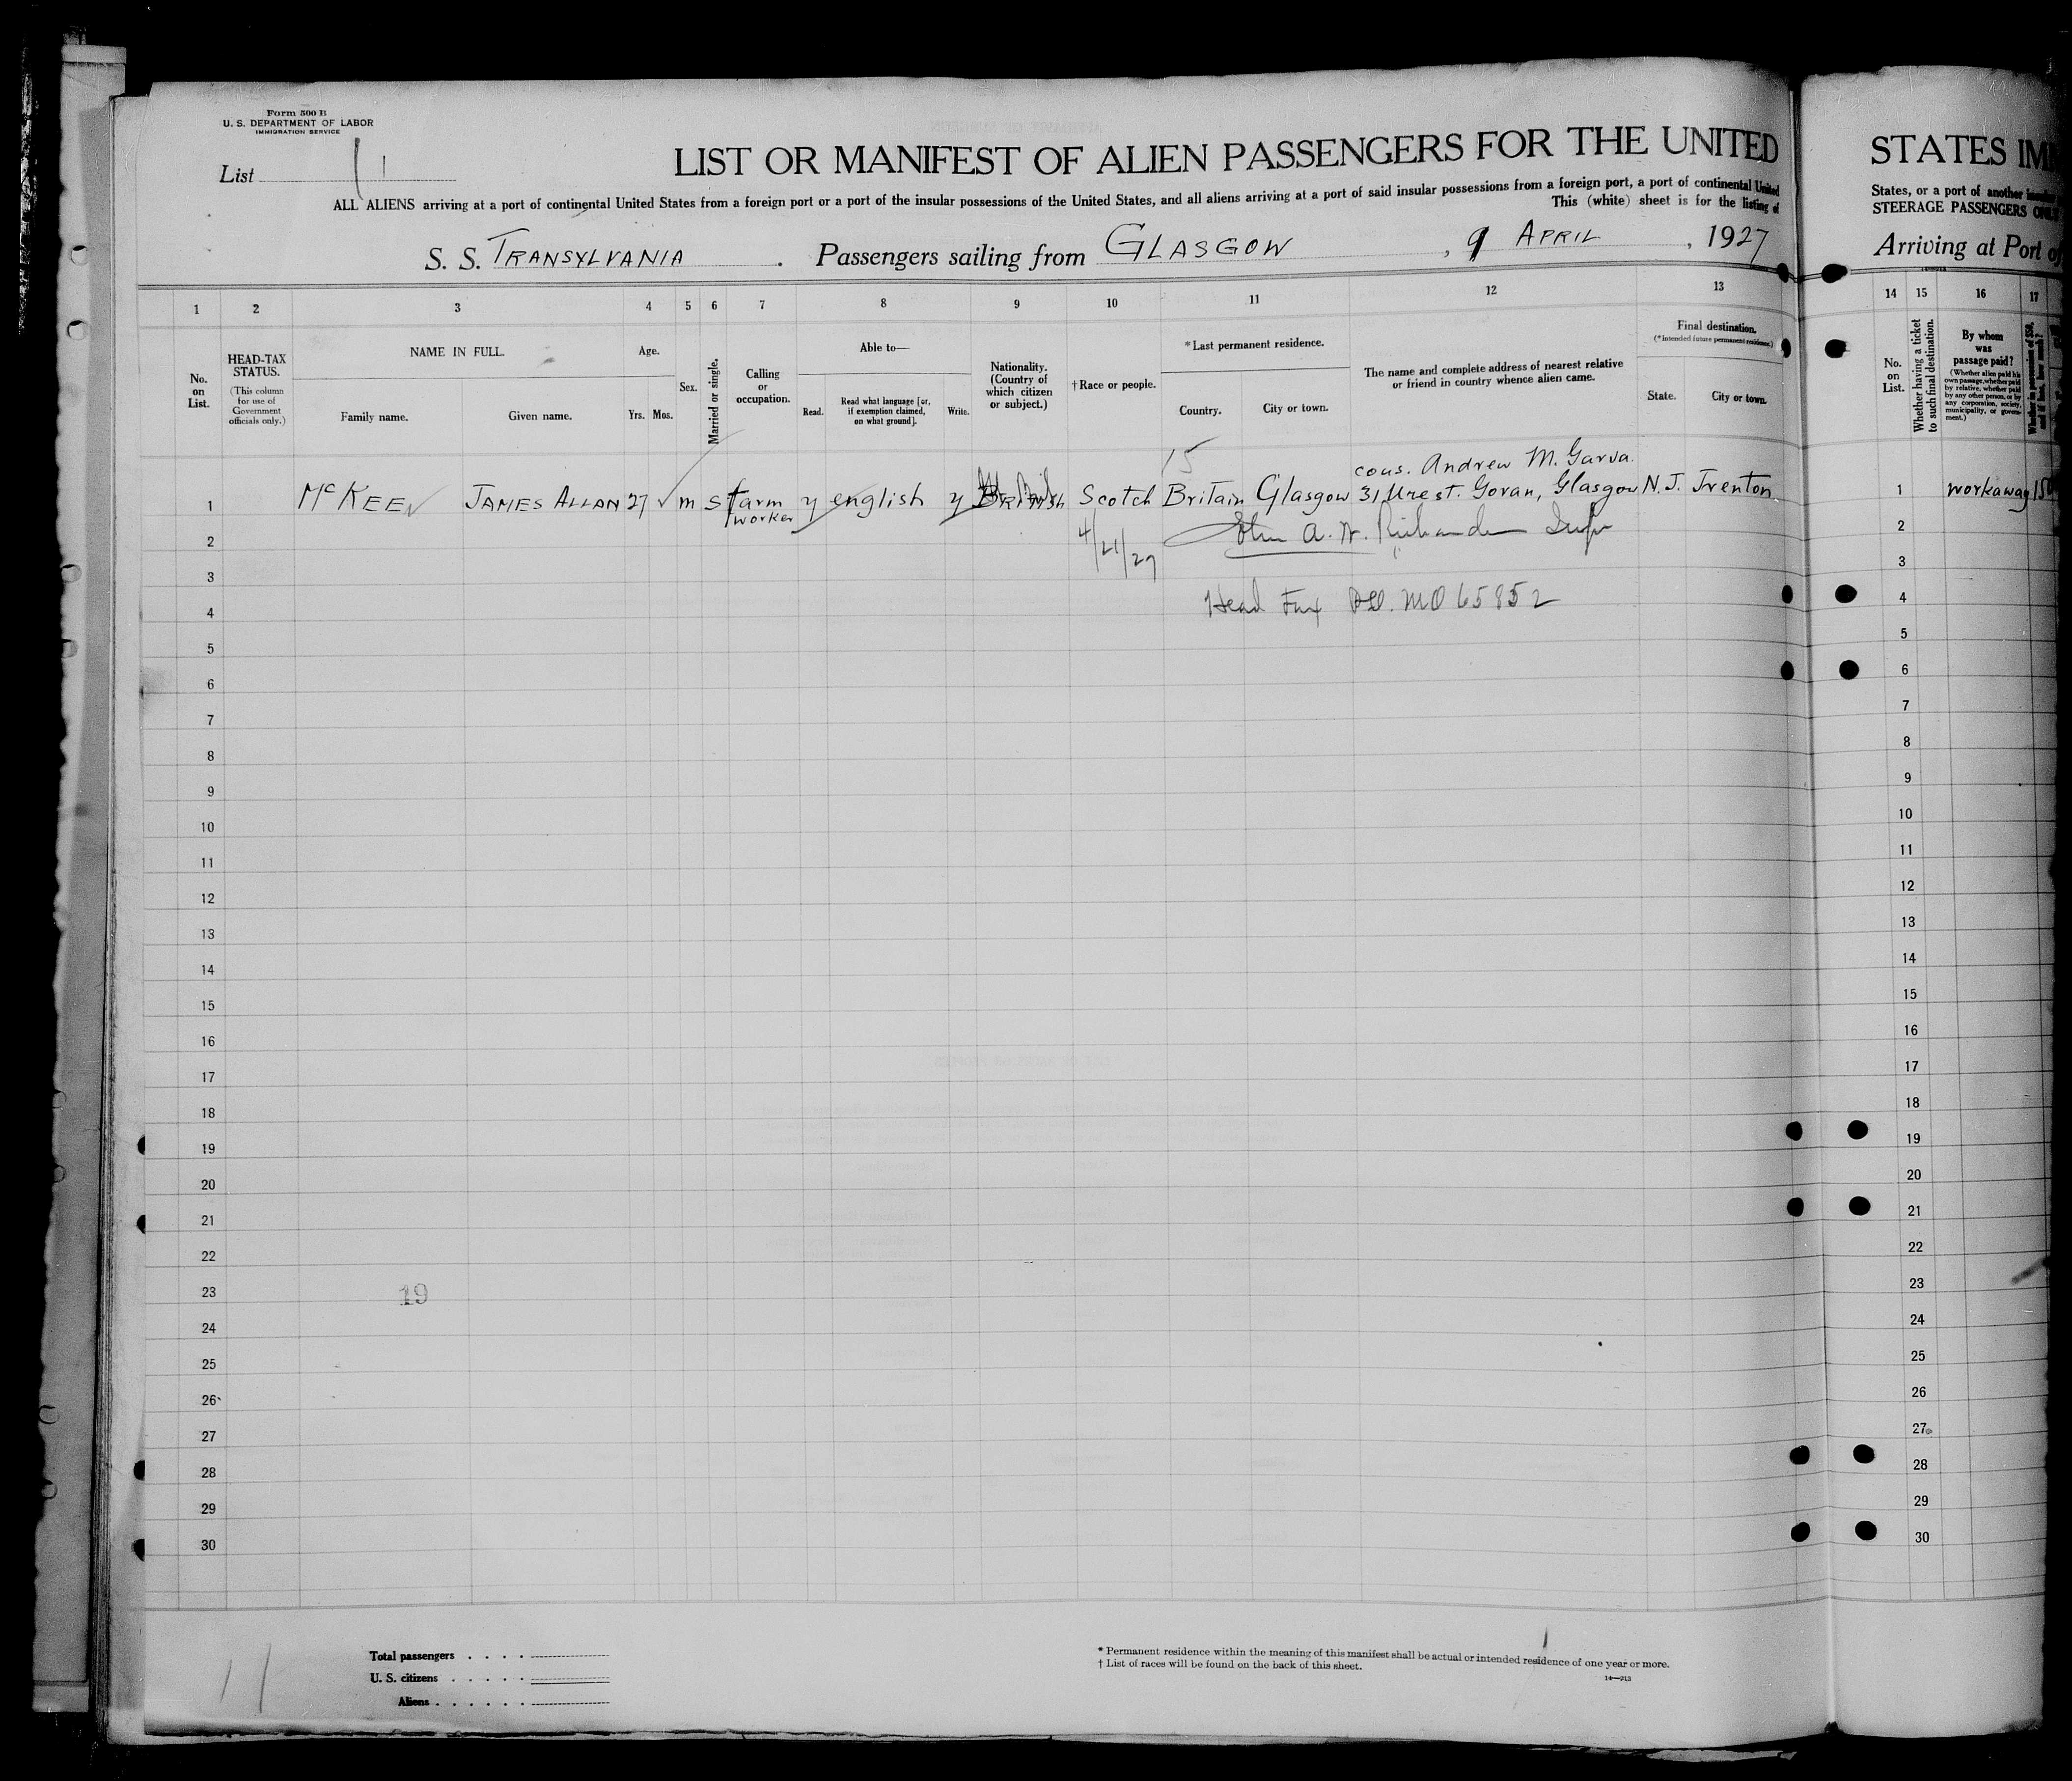 Form 500 B
U. S. DEPARTMENT OF LABOR
IMMIGRATION SERVICE
List 1
LIST OR MANIFEST OF ALIEN PASSENGERS FOR THE UNITED
ALL ALIENS arriving at a port of continental United States from a foreign port or a port of the insular possessions of the United States, and all aliens arriving at a port of said insular possessions from a foreign port, a port of continental United
This (white) sheet is for the listing of
S. S. TRANSYLVANIA . Passengers sailing from GLASGOW , 9 APRIL , 1927
1 2 3 4 5 6 7 8 9 10 11 12 13
No. on List.
HEAD-TAX STATUS.
(This column for use of Government officials only.)
NAME IN FULL.
Family name. Given name.
Age.
Yrs. Mos.
Sex.
Married or single.
Calling or occupation.
Able to—
Read. Read what language [or, if exemption claimed, on what ground]. Write.
Nationality. (Country of which citizen or subject.)
†Race or people.
*Last permanent residence.
Country. City or town.
The name and complete address of nearest relative or friend in country whence alien came.
Final destination.
(*Intended future permanent residence.)
State. City or town.
15
cous. Andrew M. Garva.
1 McKEE JAMES ALLAN 27 m S farm worker y english y BRITISH Scotch Britain Glasgow 31 Ure st. Govan, Glasgow N. J. Trenton.
2
4/21/27
John A. W.
3
4
Head Tax Pd. MO 65852
5
6
7
8
9
10
11
12
13
14
15
16
17
18
19
20
21
22
23
19
24
25
26
27
28
29
30
11
Total passengers . . . .
U. S. citizens . . . . .
Aliens . . . . . .
1
* Permanent residence within the meaning of this manifest shall be actual or intended residence of one year or more.
† List of races will be found on the back of this sheet.
14—213
STATES
States, or a port of another
STEERAGE PASSENGERS
Arriving at Port of
14 15 16 17
No. on List.
Whether having a ticket to such final destination.
By whom was passage paid?
(Whether alien paid his own passage, whether paid by relative, whether paid by any other person, or by any corporation, society, municipality, or government.)
1 workaway
2
3
4
5
6
7
8
9
10
11
12
13
14
15
16
17
18
19
20
21
22
23
24
25
26
27
28
29
30